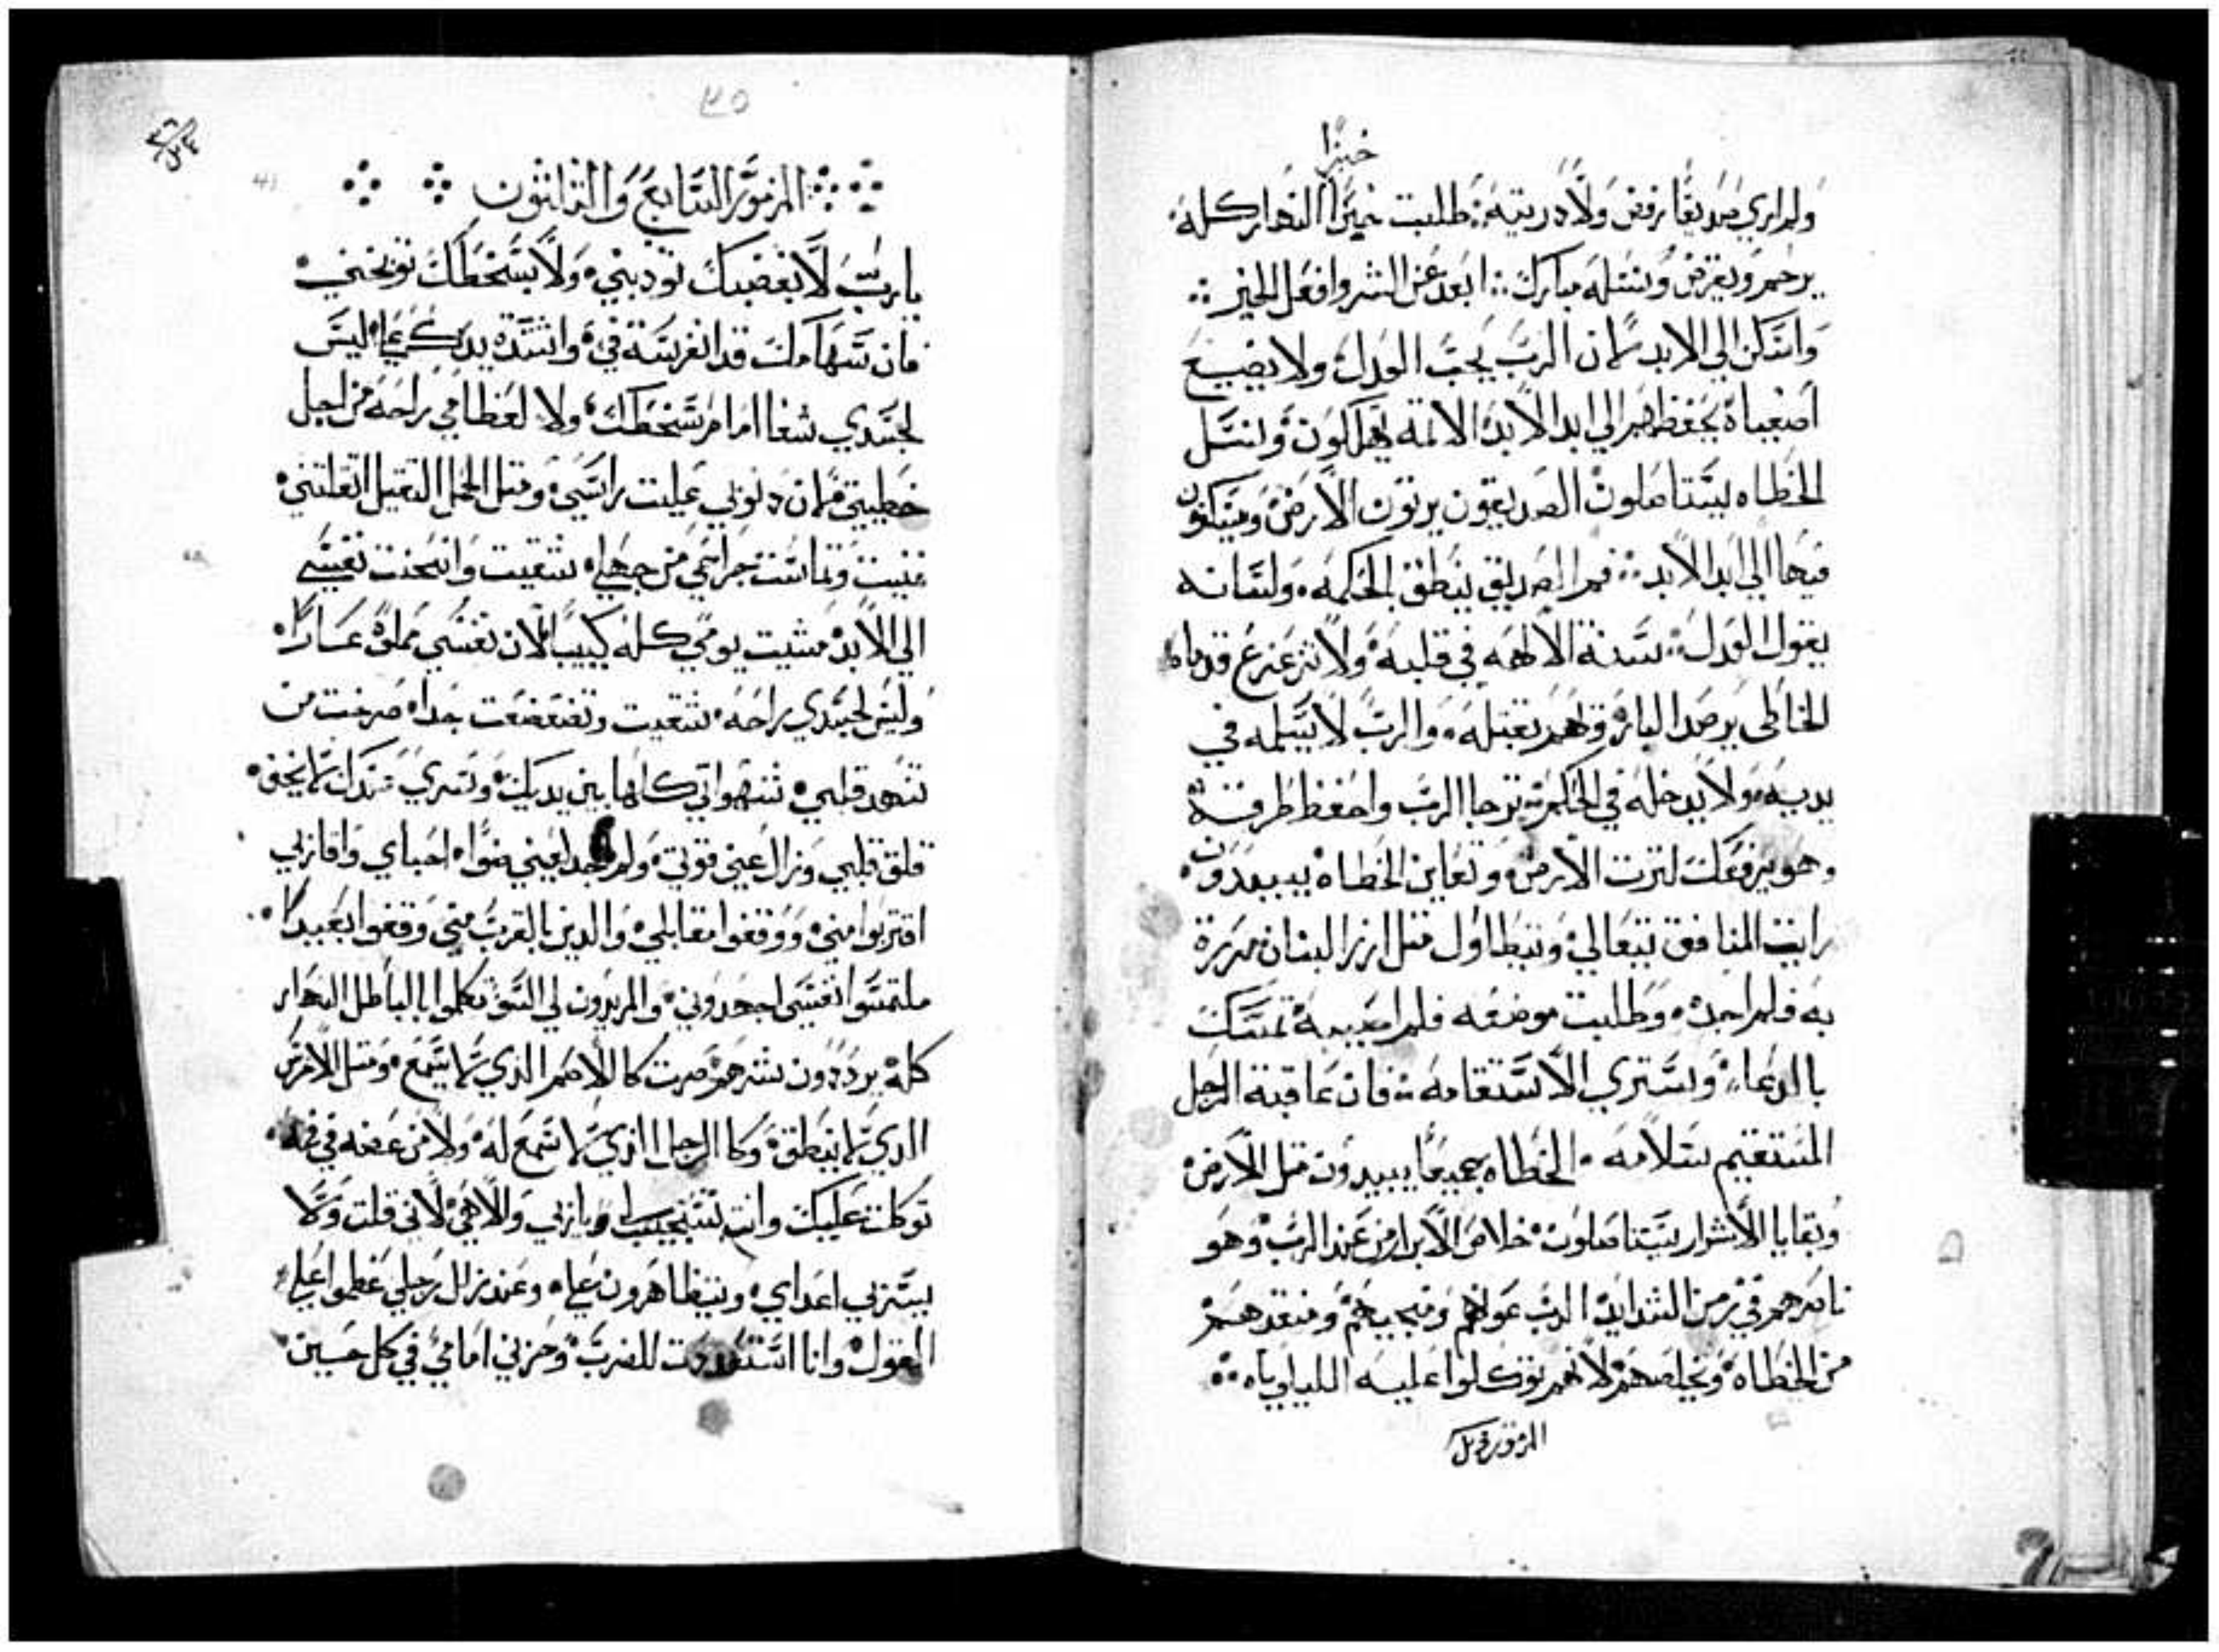 خبزا
ولم اري صديقا رفض ولا دريته طلبت خبزا النهار كله
يرحم ويقرض ونسله مبارك ابعد عن الشر وافعل الخير
واسكن الي الابد لان الرب يحب العدل ولا يضيع
اصفياه يحفظهم الي ابد الابد الاتمه يهلكون ونسل
الخطاه يستاصلون الصديقون يرتون الارض ويسكنون
فيها الي ابد الابد فم الصديق ينطق بالحكمه ولسانه
يقول العدل سنة الالهه في قلبه ولا تزعزع قدماه
الخاطي يرصد البار ويهم بقتله والرب لا يسلمه في
يديه ولا يدخله في الحكم ترجا الرب واحفظ طرقه
وهو يرفعك لترت الارض وتعاين الخطاه يبيدون
رايت المنافق يتعالي ويتطاول متل ارز لبنان مررة
به فلم اجده وطلبت موضعه فلم اصيبه تمسك
بالدعا وستري الاستقامه فان عاقبة الرجل
المستقيم سلامه الخطاه جميعا يبيدون متل الارض
وبقايا الاشرار يستاصلون خلاص الابرار من عند الرب وهو
ناصرهم في زمن الشدايد الرب عونهم ومنجيهم ومنقدهم
من الخطاه ويخلصهم لانهم توكلوا عليه الليلوياه
المزمور كمل
٣٥
المزمور السابع والثلثون
يا رب لا بغضبك تودبني ولا بسخطك توبخني
فان سهامك قد انغرسة في واشتدة يدك علي ليس
لجسدي شفا امام سخطك ولا لعظامي راحه من اجل
خطيتي لان دنوبي عليت راسي ومتل الحمل التقيل اتقلتني
نتنت وقاست جراحي من جهلي شقيت وانحنت نفسي
الي الابد مشيت يومي كله كييبا لان نفسي مملوه عارا
وليس لجسدي راحه شقيت وتضعضعت جدا صرخت من
تنهد قلبي شهواتي كلها بين يديك وسري عندك لا يخفي
قلق قلبي وزال عني قوتي ولم تجد اعيني ضوا احباي واقاربي
اقتربوا مني ووقفوا مقابلي والدين بالقرب مني وقفوا بعيدا
ملتمسوا نفسي اجهدوني والمريدون لي السو تكلموا بالباطل النهار
كله يرددون شرهم صرت كالاصم الذي لا يسمع ومتل الاخرس
الدي لا ينطق وكالرجل الذي لا سمع له ولا من عضه في فمه
توكلت عليك وانت تستجيب لي يا ربي والاهي لاني قلت ولا
يسر بي اعداي ويتظاهرون علي وعند زلل رجلي عظموا علي
القول وانا استعديت للضرب وحزني امامي في كل حين